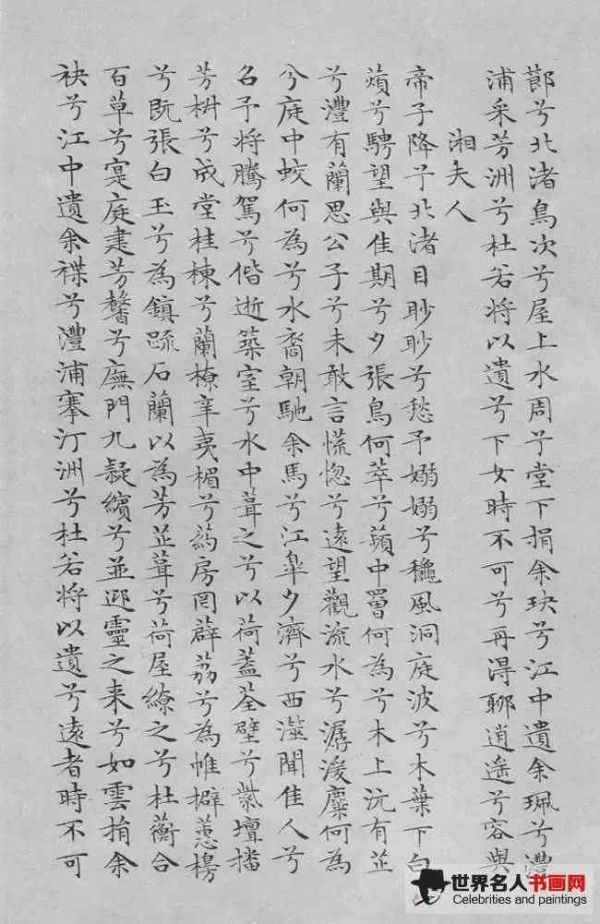 節兮北渚鳥次兮屋上水周予堂下捐余玦兮江中遺余珮兮澧
浦采芳洲兮杜若將以遺兮下女時不可兮再得聊逍遥兮容與
湘夫人
帝子降予北渚目眇眇兮愁予嫋嫋兮穐風洞庭波兮木葉下白
薠兮騁望與佳期兮夕張鳥何萃兮蘋中罾何為兮木上沅有芷
兮澧有蘭思公子兮未敢言慌惚兮遠望觀流水兮潺湲麋何為
兮庭中蛟何為兮水裔朝馳余馬兮江皋夕濟兮西澨聞佳人兮
名予將騰駕兮偕逝築室兮水中葺之兮以荷蓋荃壁兮紫壇播
芳枡兮成堂桂棟兮蘭橑辛夷楣兮葯房罔薜荔兮為帷擗蕙櫋
兮既張白玉兮為鎮疏石蘭以為芳芷葺兮荷屋繚之兮杜蘅合
百草兮寔庭建芳馨兮廡門九疑繽兮並迎靈之来兮如雲捐余
袂兮江中遺余褋兮澧浦搴汀洲兮杜若將以遺兮遠者時不可
世界名人书画网
Celebrities and paintings